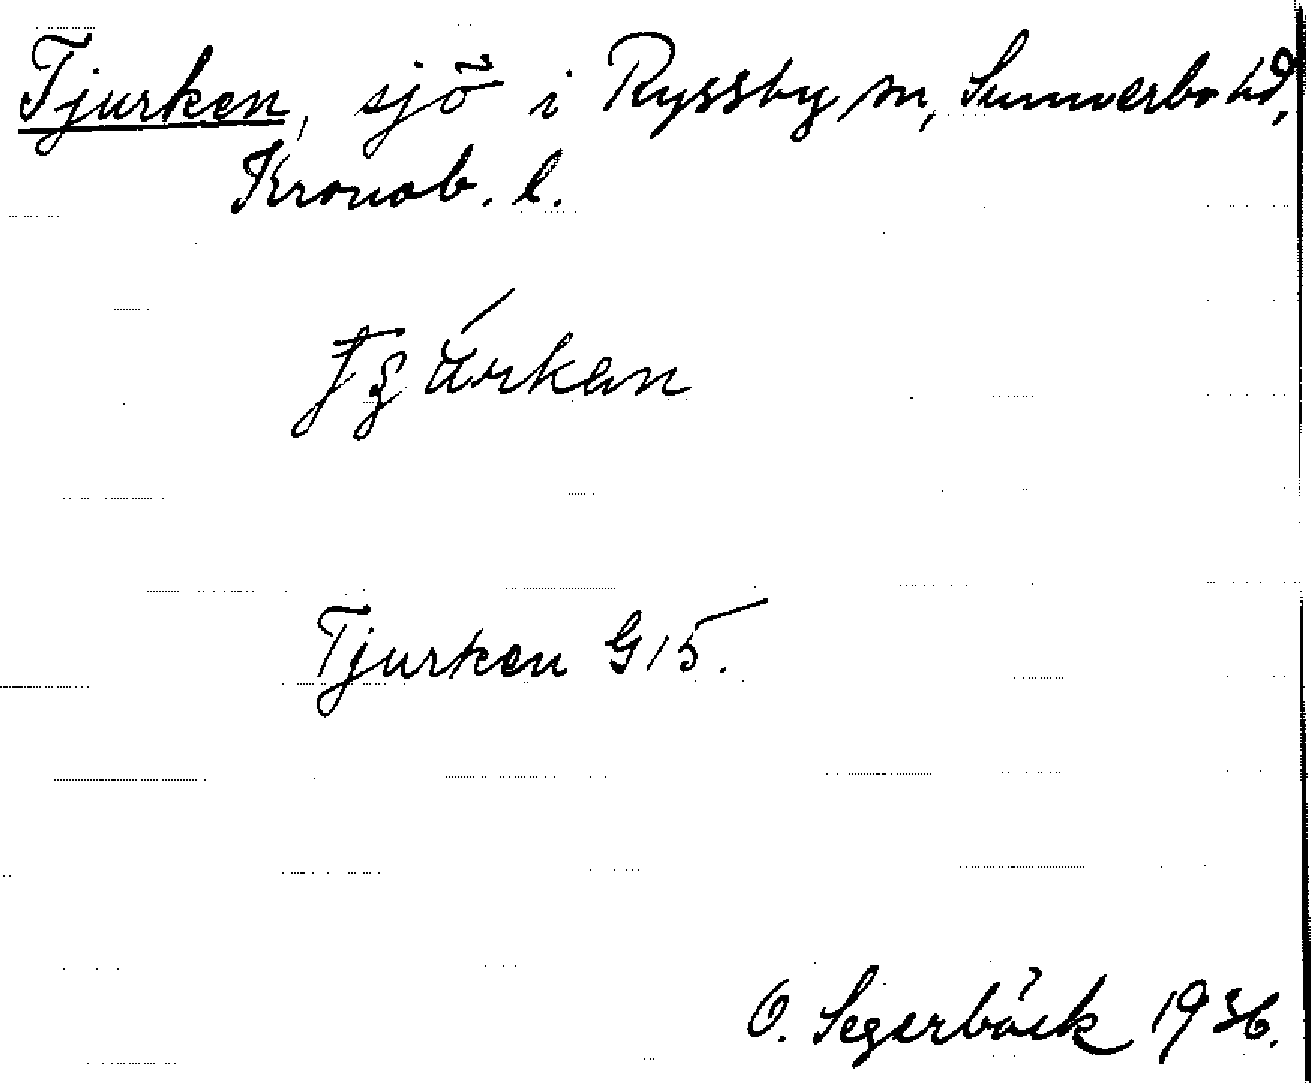 Tjurken, sjö i Ryssby sn, Sunnerbo hd,
Kronob. l.
Tjurken G15.
O. Segerbäck 1936.